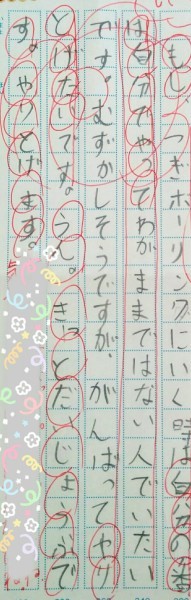 もし、つぎボーリングにいく時は自分の番
は自分でやってわがままではない人でいたい
です。むずかしそうですが、がんばってやり
とげたいです。うん。きっとだいじょうぶで
す。やりとげます。